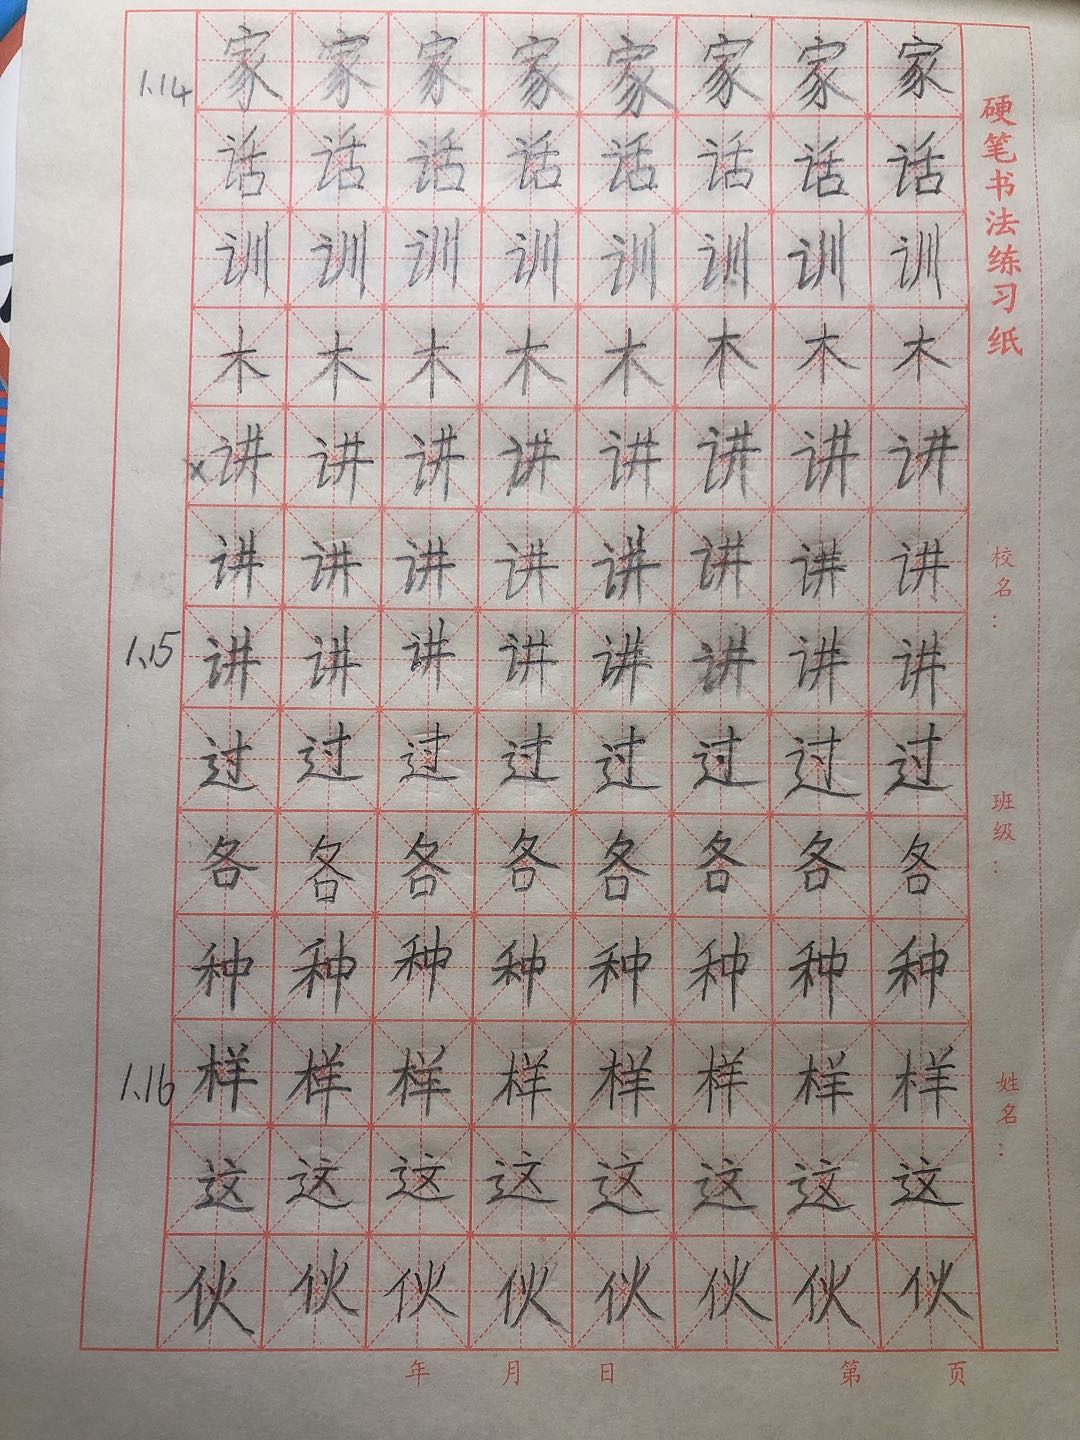 硬笔书法练习纸
1.14 家家家家家家家家
话话话话话话话话
训训训训训训训训
木木木木木木木木
x讲讲讲讲讲讲讲讲
讲讲讲讲讲讲讲讲
1.15 讲讲讲讲讲讲讲讲
过过过过过过过过
各各各各各各各各
种种种种种种种种
1.16 样样样样样样样样
这这这这这这这这
伙伙伙伙伙伙伙伙
校名：
班级：
姓名：
年 月 日 第 页